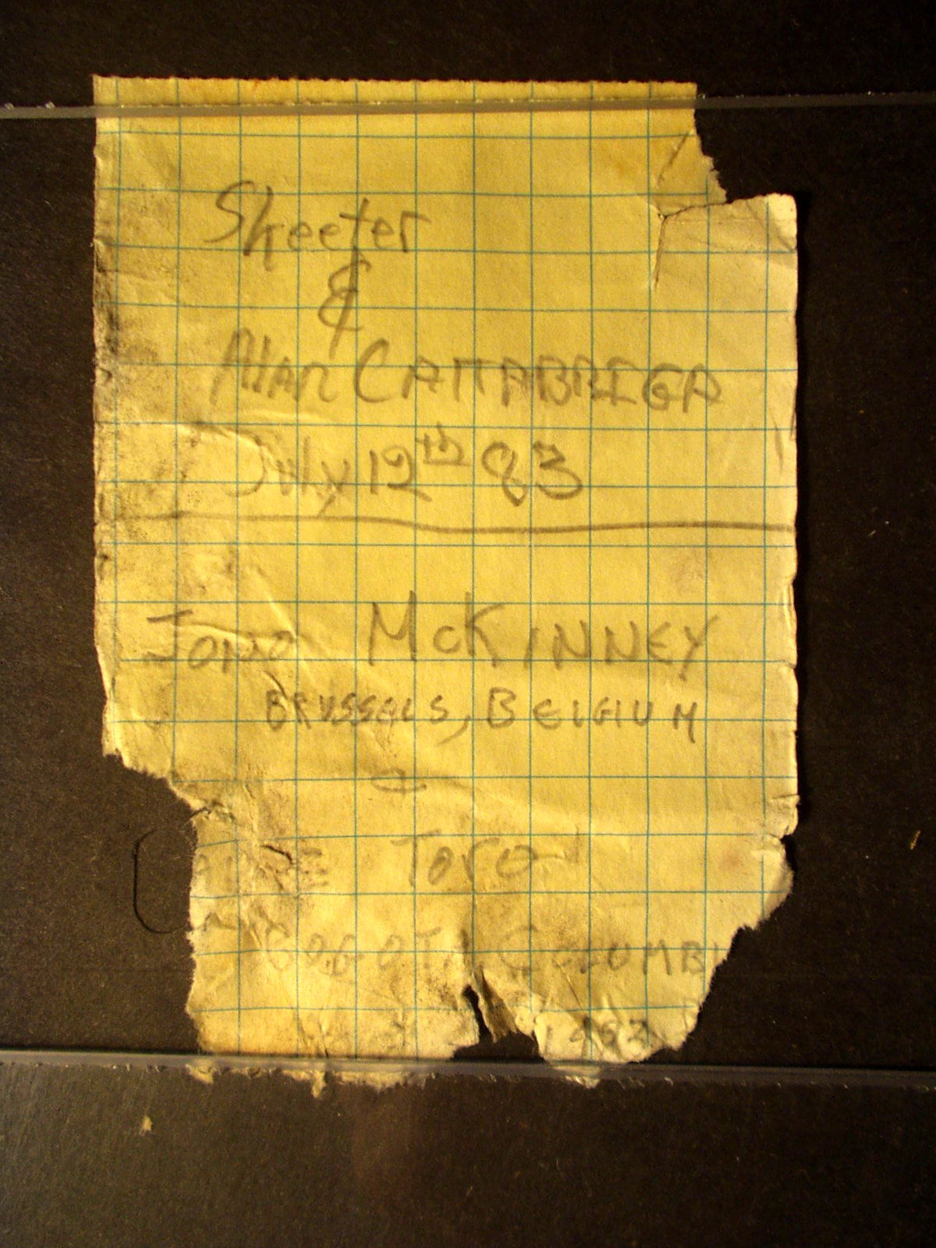 Skeeter
&
Alan CANTABREGA
July 12th 83
McKINNEY
BRUSSELS, BELGIUM
Toro
BOGOTA COLUMBI